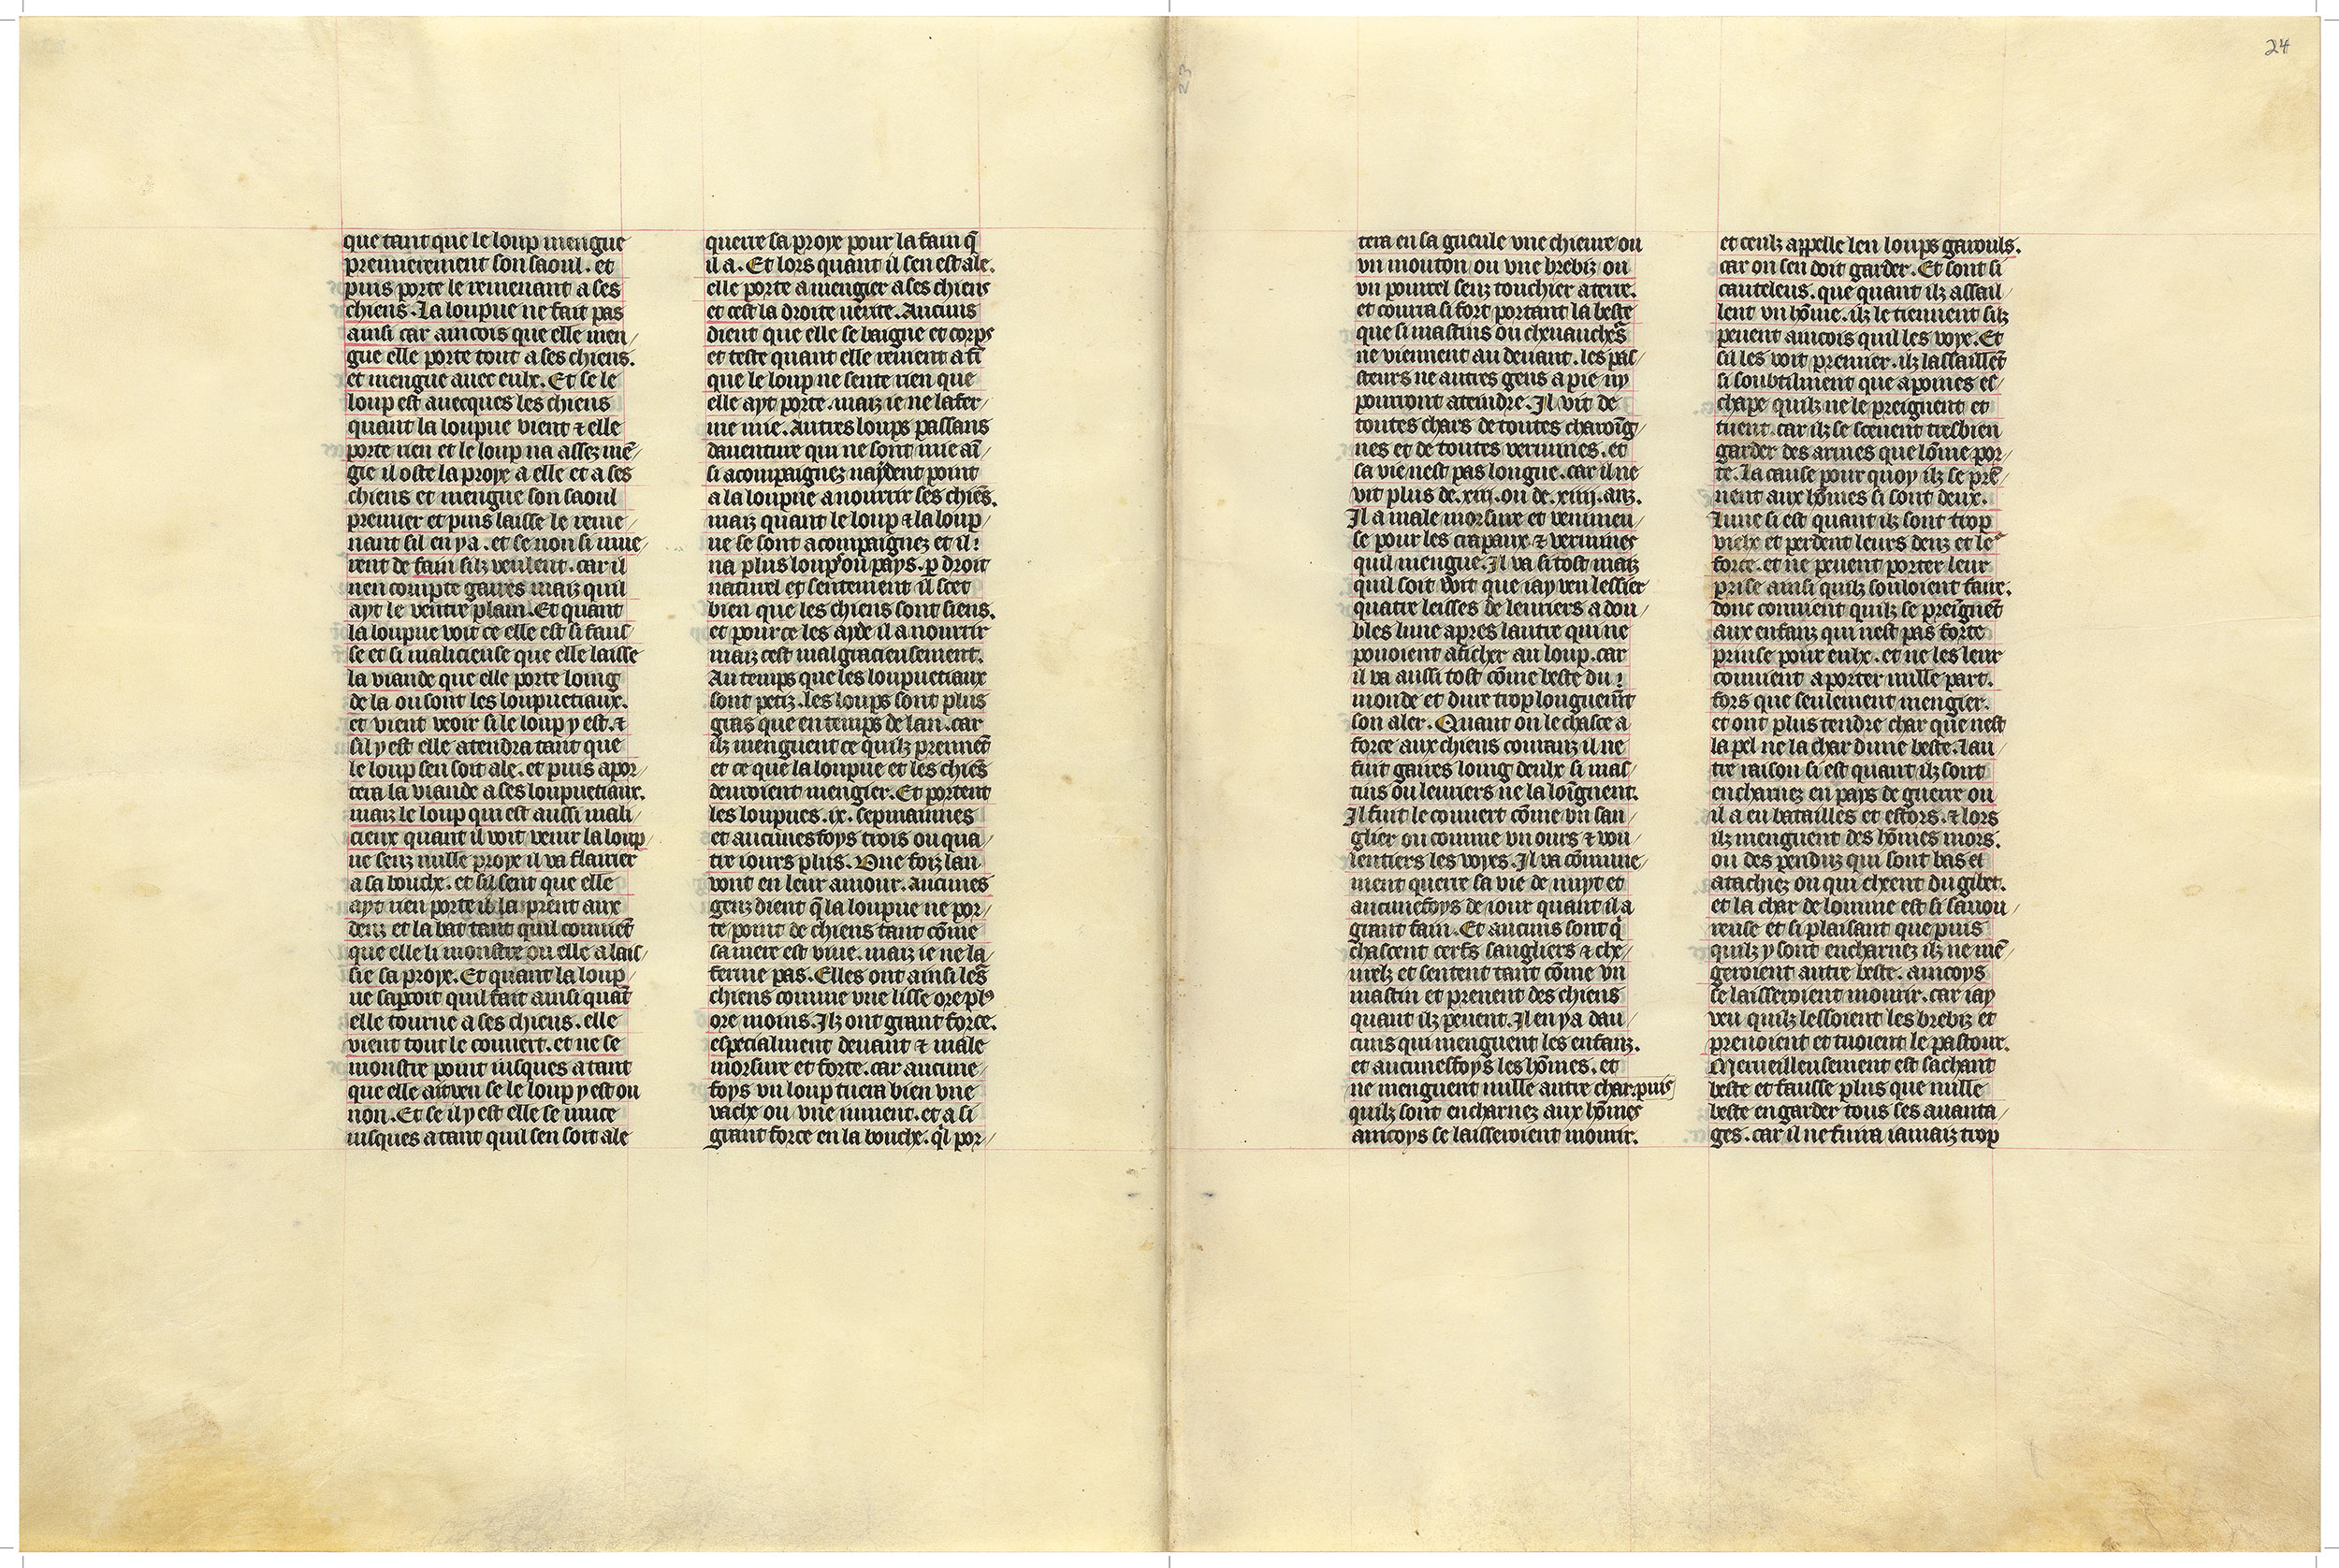 24
23
que tant que le loup mengue
premierement son saoul. et
puis porte le remenant a ses
chiens. La loupue ne fait pas
ainsi car aincois que elle men/
gue elle porte tout a ses chiens.
et mengue auec eulx. Et se le
loup est auecques les chiens
quant la loupue vient ⁊ elle
porte rien et le loup na assez mē/
gie il oste la proye a elle et a ses
chiens et mengue son saoul
premier et puis laisse le reme/
nant sil en ya. et se non si mue/
rent de faim silz veulent. car il
nen compte gaires maiz quil
ayt le ventre plain. Et quant
la loupue voit ce elle est si faus/
se et si malicieuse que elle laisse
la viande que elle porte loing
de la ou sont les loupuetiaux.
et vient veoir si le loup y est. ⁊
sil y est elle atendra tant que
le loup sen soit ale. et puis apor/
tera la viande a ses loupuetiaux.
maiz le loup qui est aussi mali/
cieux quant il voit venir la loup/
ue senz nulle proye il va flairier
a sa bouche. et sil sent que elle
ayt rien porte il la prent aux
denz et la bat tant quil conuiēt
que elle li monstre ou elle a lais/
sie sa proye. Et quant la loup/
ue sapoit quil fait ainsi quāt
elle tourne a ses chiens. elle
vient tout le couuert. et ne se
monstre point iusques a tant
que elle ait veu se le loup y est ou
non. Et se il y est elle se muce
iusques a tant quil sen soit ale
querre sa proye pour la faim q̄
il a. Et lors quant il sen est ale.
elle porte a mengier a ses chiens
et cest la droite uerite. Aucuns
dient que elle se baigne et corps
et teste quant elle reuient a fī
que le loup ne sente rien que
elle ayt porte. maiz ie ne lafer/
me mie. Autres loups passans
dauenture qui ne sont mie aī/
si acompaignez naydent point
a la loupue a nourrir ses chiēs.
maiz quant le loup ⁊ la loup/
ue se sont acompaignez et il
na plus loups ou pays. p droit
naturel et sentement il scet
bien que les chiens sont siens.
et pour ce les ayde il a nourrir
maiz cest malgracieusement.
Au temps que les loupuetiaux
sont petiz. les loups sont plus
gras que en temps de lan. car
ilz menguent ce quilz prennēt
et ce que la loupue et les chiēs
deuroient mengier. Et portent
les loupues .ix. sepmainnes
et aucunesfoys trois ou qua/
tre iours plus. Une foiz lan
vont en leur amour. aucunes
genz dient q̄ la loupue ne por/
te point de chiens tant cōme
sa mere est viue. maiz ie ne la/
ferme pas. Elles ont ainsi les
chiens comme vne lisse ore plꝰ
ore moins. Ilz ont grant force.
especialment deuant ⁊ male
morsure et forte. car aucune/
foys vn loup tuera bien vne
vache ou vne iument. et a si
grant force en la bouche. ql por/
tera en sa gueule vne chieure ou
vn mouton ou vne brebiz ou
vn pourcel senz touchier a terre.
et courra si fort portant la beste
que si mastins ou cheuauchēs
ne viennent au deuant. les pas/
steurs ne autres gens a pie ny
pourront ateindre. Il vit de
toutes chars de toutes charoīg/
nes et de toutes vermines. et
sa vie nest pas longue. car il ne
vit plus de .xiii. ou de .xiiii. anz.
Il a male morsure et venimeu/
se pour les crapaux ⁊ vermines
quil mengue. Il va si tost maiz
quil soit voit que iay veu lessier
quatre lesses de leuriers a dou/
bles lune apres lautre qui ne
pouoient ataīcher au loup. car
il va aussi tost cōme beste du
monde et dure trop longuemēt
son aler. Quant on le chasce a
force aux chiens couranz il ne
fuit gaires loing deulx si mas/
tins ou leuriers ne la loīgnent.
Il fuit le couuert cōme vn san/
glier ou comme vn ours ⁊ vou/
lentiers les voyes. Il va cōmune/
ment querre sa vie de nuyt et
aucunefoys de iour quant il a
grant faim. Et aucuns sont q
chascent cerfs sangliers ⁊ che/
urelz et sentent tant cōme vn
mastin et prenent des chiens
quant ilz peuent. Il en ya dau/
cuns qui menguent les enfanz.
et aucunesfoys les hōmes. et
ne menguent nulle autre char. puis
quilz sont encharnez aux hōmes
aincoys se laisseroient mourir.
et ceulz appelle len loups garouls.
car on sen doit garder. Et sont si
cauteleus. que quant ilz assail/
lent vn hōme. ilz le tiennent silz
peuent aincois quil les voye. Et
sil les voit premier. ilz lassaillēt
si soubtilment que a poines es/
chape quilz ne le preignent et
tuent. car ilz se sceuent tresbien
garder des armes que lōme por/
te. La cause pour quoy ilz se prē/
nent aux hōmes si sont deux.
Lune si est quant ilz sont trop
vielx et perdent leurs denz et le
force. et ne peuent porter leur
prise ainsi quilz souloient faire.
donc conuient quilz se preignēt
aux enfanz qui nest pas forte
prinse pour eulx. et ne les leur
conuient aporter nulle part.
fors que seulement mengier.
et ont plus tendre char que nest
la pel ne la char dune beste. Lau/
tre raison si est quant ilz sont
encharnez en pays de guerre ou
il a eu batailles et estors. ⁊ lors
ilz menguent des hōmes mors.
ou des penduz qui sont bas et
atachiez ou qui cheent du gibet.
et la char de lomme est si sauou/
reuse et si plaisant que puis
quilz y sont encharnez ilz ne mē/
geroient autre beste. aincoys
se laisseroient mourir. car iay
veu quilz lessoient les brebiz et
prenoient et tuoient le pastour.
Merueilleusement est sachant
beste et fausse plus que nulle
beste en garder tous ses auanta/
ges. car il ne fuira iamaiz trop